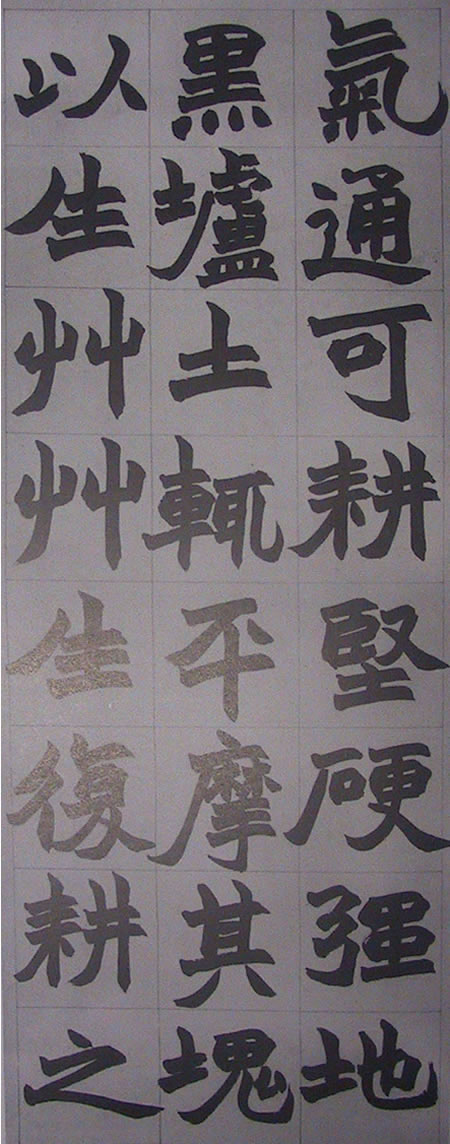 氣通可耕堅硬强地
黑壚土輒平摩其塊
以生艸艸生復耕之